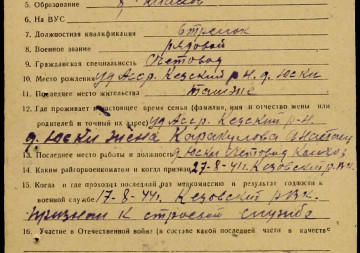 5. Образование 8 классов
6. На ВУС
7. Должностная квалификация стрелок
8. Военное звание рядовой
9. Гражданская специальность счетовод
10. Место рождения уд Асср. Кезский р-н. д. Юски
11. Последнее место жительства также
12. Где проживает в настоящее время семья (фамилия, имя и отчество жены или
родителей и точный их адрес) уд Асср. Кезский р-н.
д. Юски жена Каракулова
13. Последнее место работы и должность д Юски счетовод колхоз
14. Каким райгорвоенкоматом и когда призван 27-8-41г. Кезовский РВК
15. Когда и где проходил последний раз медкомиссию и результат годности к
военной службе 17-8-41г. Кезовский РВК.
признан к строевой службе
16. Участие в Отечественной войне (в составе какой последней части в качестве